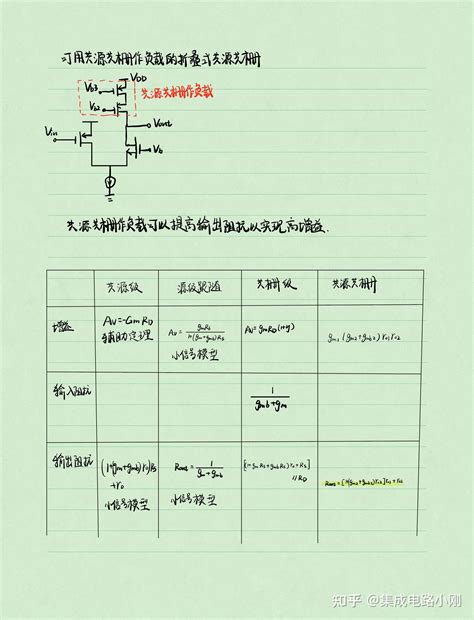 可用共源共栅作负载的折叠式共源共栅
VDD
Vb3
Vb2
共源共栅作负载
Vin
Vout
Vb
共源共栅作负载可以提高输出阻抗以实现高增益.
共源级 源级跟随 共栅级 共源共栅
增益 Av=-GmRD 辅助定理 Av= gmRs / 1+(gm+gmb)Rs 小信号模型 Av=gmRD(1+η) gm1(gm2+gmb2)ro1ro2
输入阻抗 1 / gmb+gm
输出阻抗 (1+(gm+gmb)ro)Rs +ro 小信号模型 Rout= 1 / gm+gmb 小信号模型 [1+gmRs+gmbRs)ro+Rs] //RD Rout=[1+(gm2+gmb2)ro2]ro1+ro2
知乎 @集成电路小刚